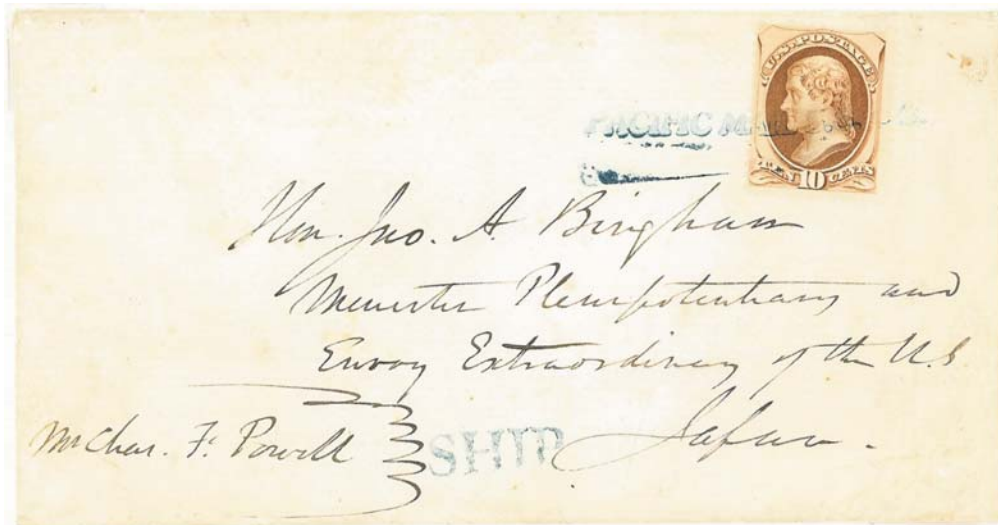 U.S. POSTAGE
PACIFIC MAIL
TEN 10 CENTS
Hon. Jno. A. Bingham
Minister Plenipotentiary and
Envoy Extraordinary of the U.S
Japan.
Mr Chas. F. Powell
SHIP